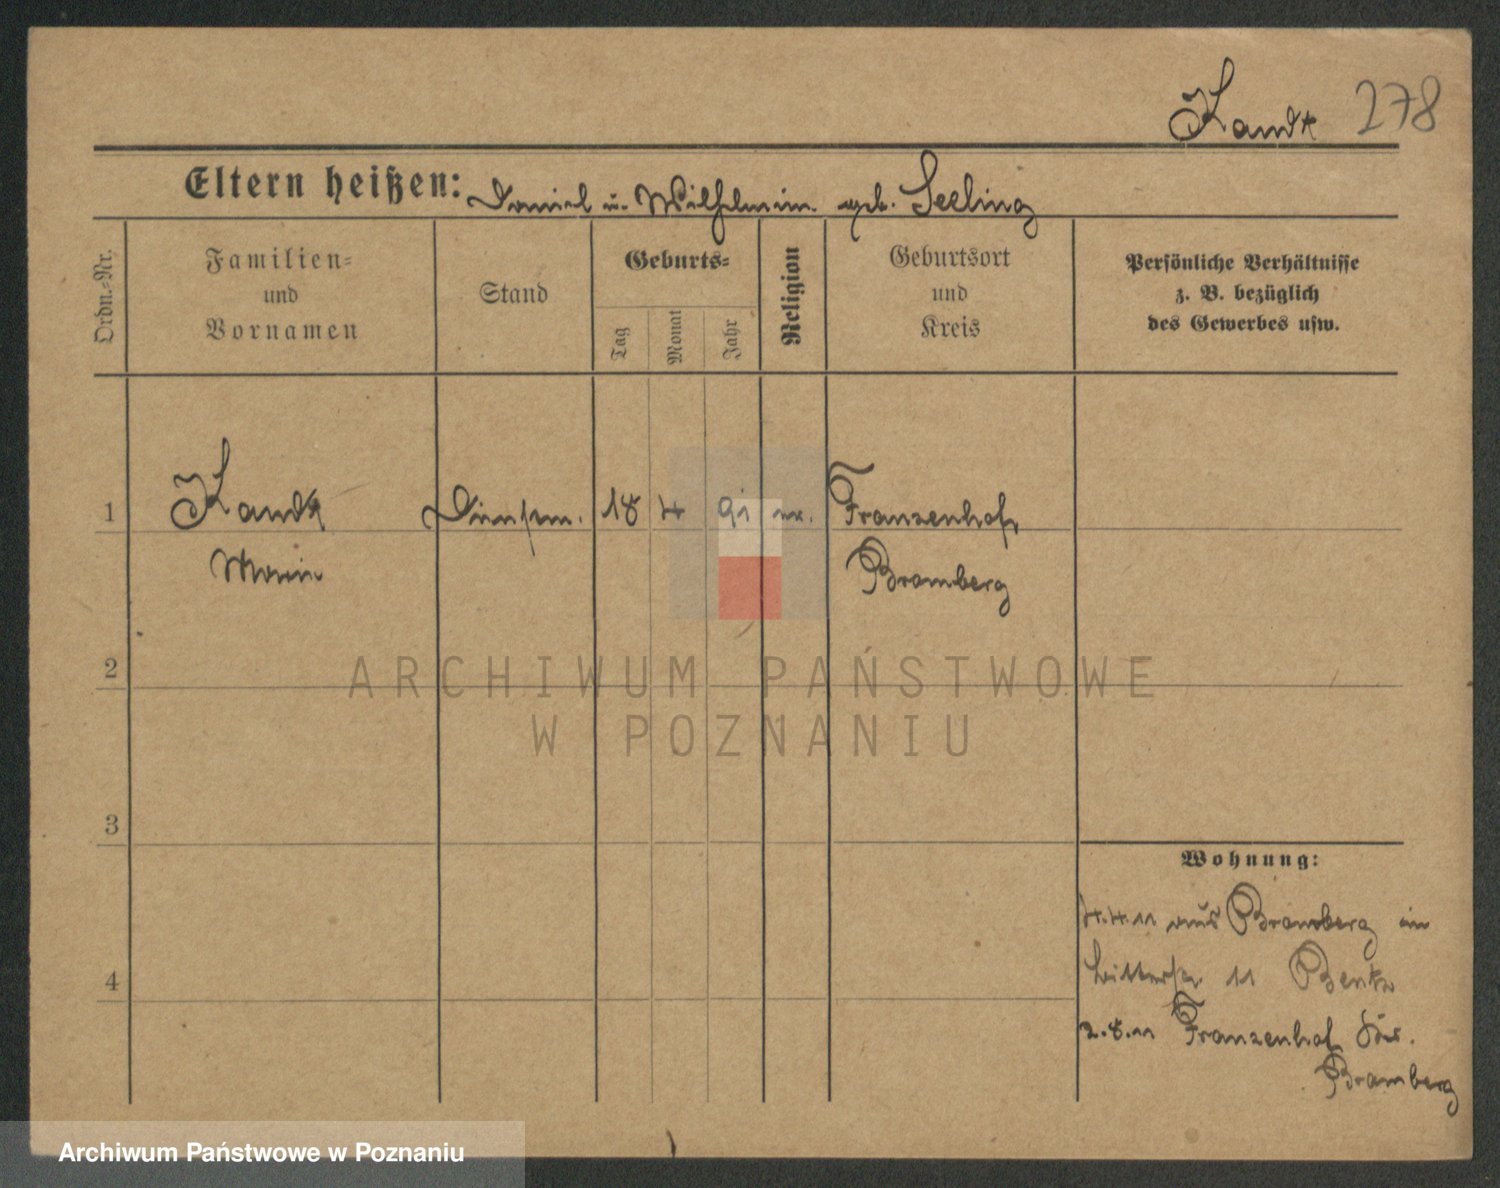 Kandt 278
Eltern heißen: Daniel u. Wilhelmin. geb. Seeling
Ordn.-Nr.
Familien-
und
Vornamen
Stand
Geburts-
Tag
Monat
Jahr
Religion
Geburtsort
und
Kreis
Persönliche Verhältnisse
z. B. bezüglich
des Gewerbes usw.
1 Kandt Dienstm. 18 4 91 ev. Franzenhof
Marie Bromberg
2
ARCHIWUM PAŃSTWOWE
W POZNANIU
3
Wohnung:
4.4.11 aus Bromberg in
11
4
2.8.11 Franzenhof Kr.
Bromberg
Archiwum Państwowe w Poznaniu